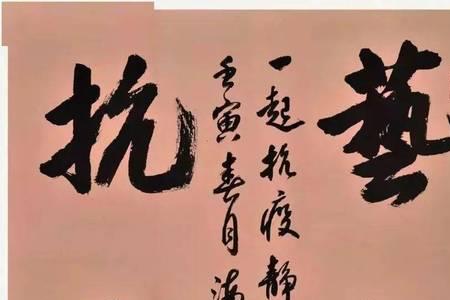 藝
一起抗疫静
壬寅春月
抗